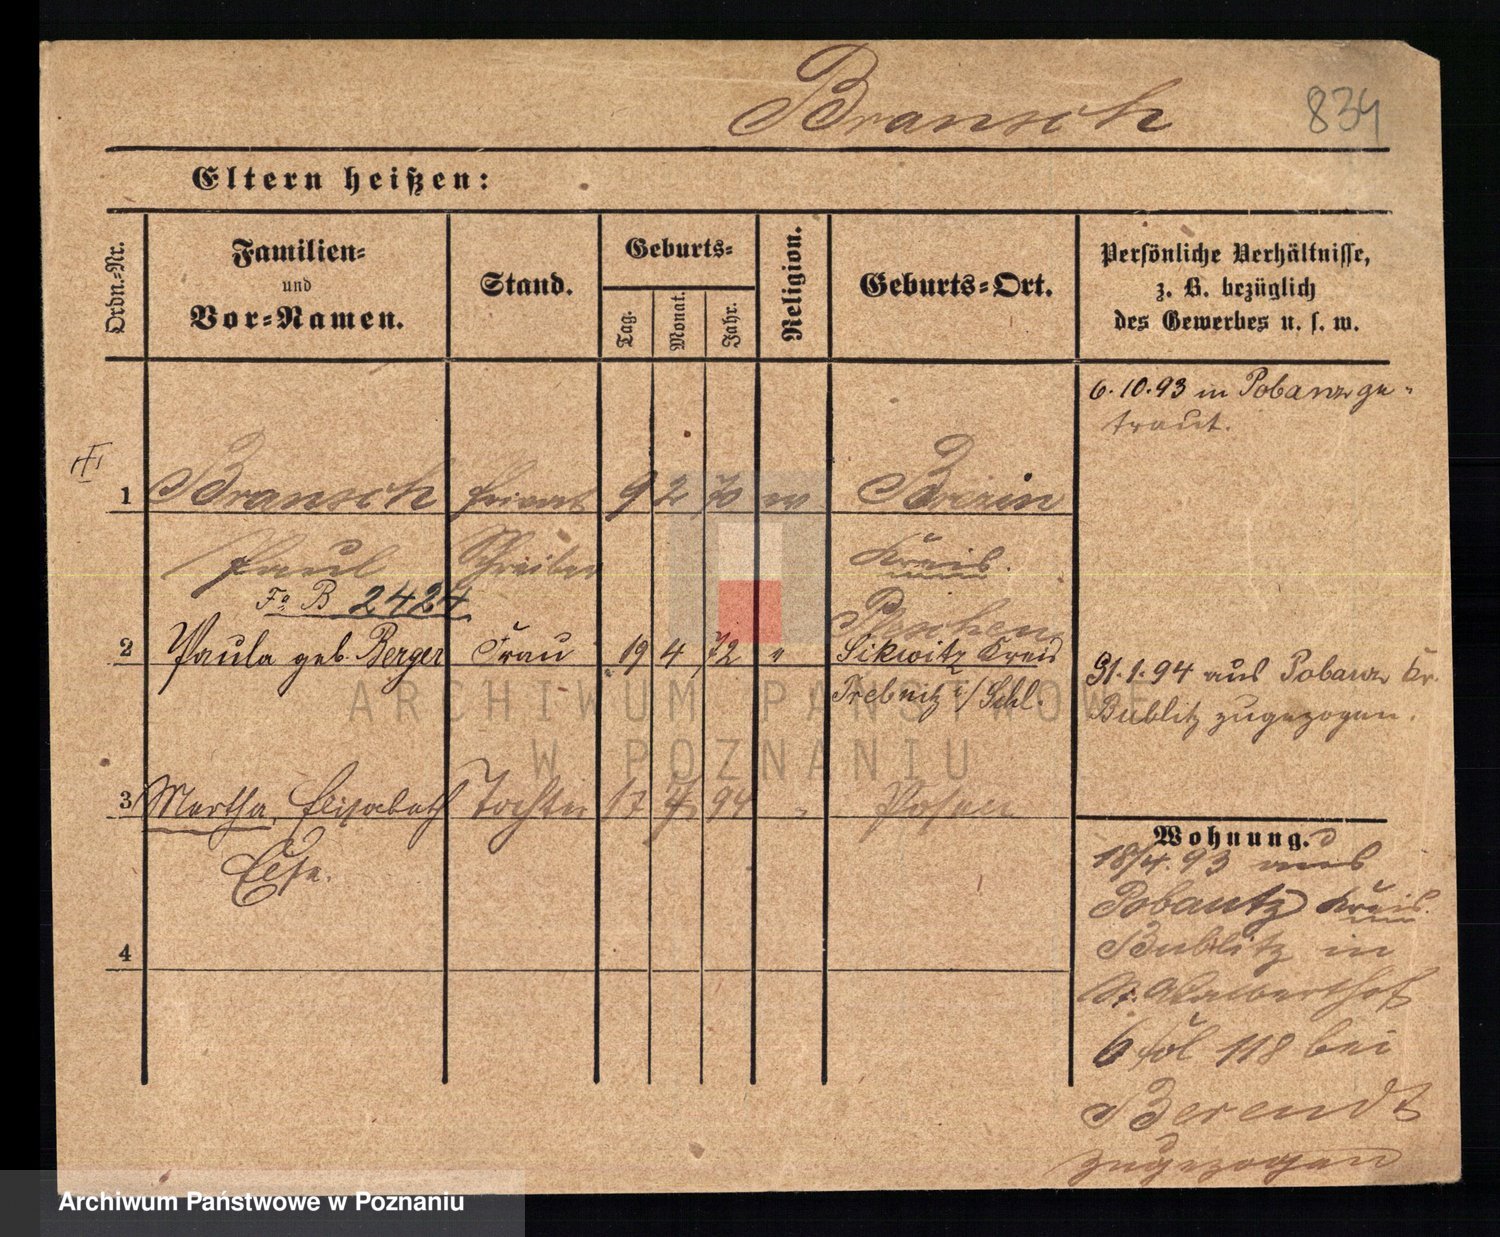 Bransch
834
Eltern heißen:
Ordn.-Nr.
Familien-
und
Vor-Namen.
Stand.
Geburts-
Tag.
Monat.
Jahr.
Religion.
Geburts-Ort.
Persönliche Verhältnisse,
z. B. bezüglich
des Gewerbes u. s. w.
6. 10. 93 in Pobanz ge-
traut.
1 Bransch Privat 9 2 70
Paul Schreiber Kreis
Fa B 2424
2 Paula geb. Berger Frau 19 4 72 " Sikwitz Kreis
Trebnitz i/Schl.
31. 1. 94 aus Pobanz Kr.
Bublitz zugezogen.
ARCHIWUM PAŃSTWOWE
W POZNANIU
3 Martha, Elisabeth Tochter 17 94 " Posen
Else.
4
Wohnung.
18/4. 93 aus
Pobantz Kreis
Bublitz in
St. Adalberthof
6 118 bei
Berendt
zugezogen
Archiwum Państwowe w Poznaniu